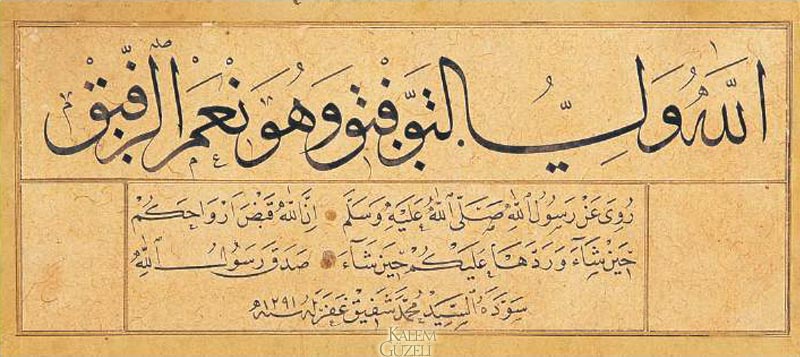 اَللّٰهُ وَلِيُّ التَّوْفِيقِ وَهُوَ نِعْمَ الرَّفِيقُ
رُوِیَ عَنْ رَسُولِ اللّٰهِ صَلَّى اللّٰهُ عَلَيْهِ وَسَلَّمَ اِنَّ اللّٰهَ قَبَضَ اَرْوَاحَكُمْ
حِينَ شَٓاءَ وَرَدَّهَا عَلَيْكُمْ حِينَ شَٓاءَ صَدَقَ رَسُولُ اللّٰهِ
سَوَّدَهُ السَّيِّد مُحَمَّد شَفِيق غُفِرَ لَهُ سنه ١٢٩١
KALEM
GÜZELİ